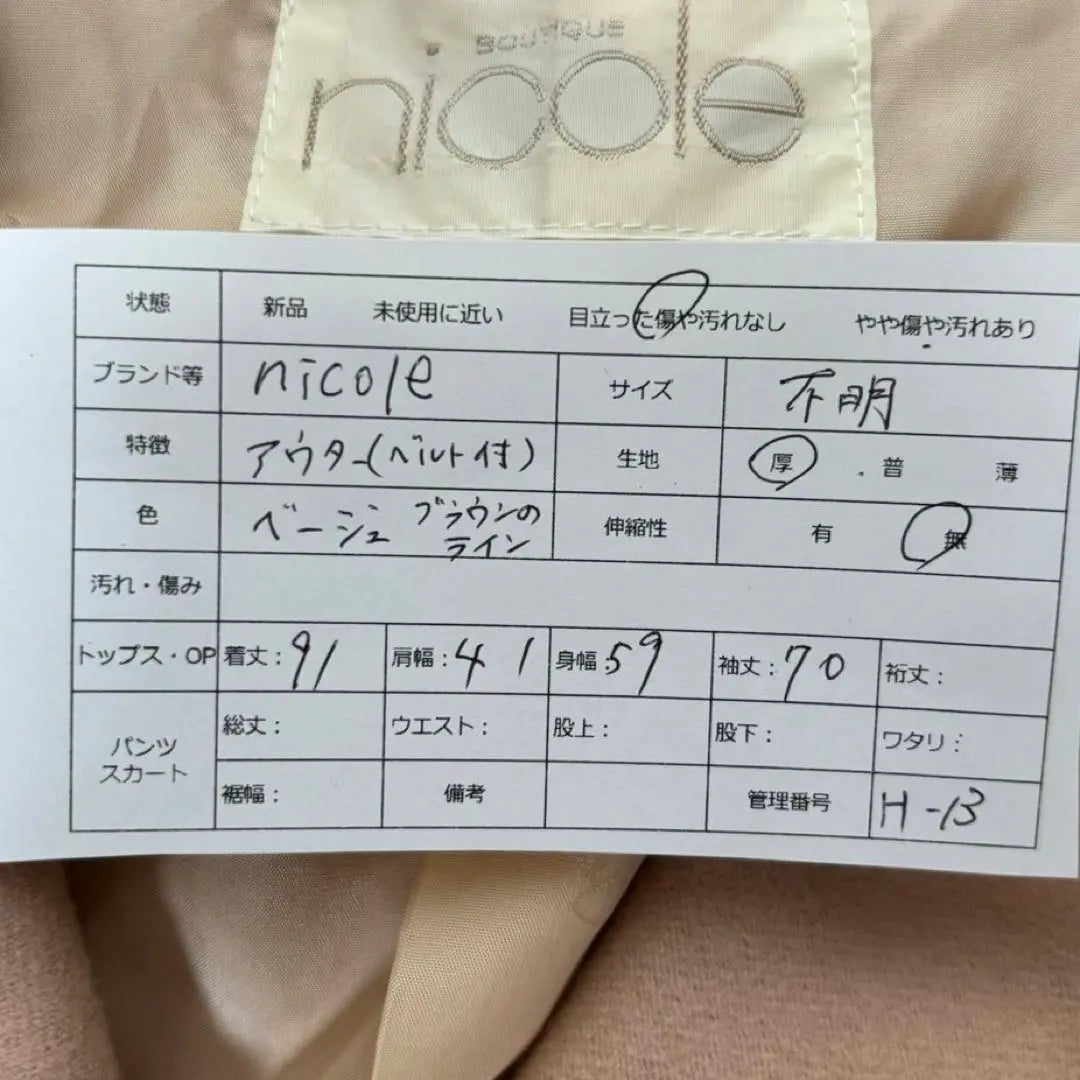 BOUTIQUE
nicole
状態 新品 未使用に近い 目立った傷や汚れなし やや傷や汚れあり
ブランド等 nicole サイズ 不明
特徴 アウター(ベルト付) 生地 厚 ・ 普 薄
色 ベージュ ブラウンの
ライン 伸縮性 有 無
汚れ・傷み
トップス・OP 着丈：91 肩幅：41 身幅：59 袖丈：70 裄丈：
パンツ
スカート 総丈： ウエスト： 股上： 股下： ワタリ：
裾幅： 備考 管理番号 H-13